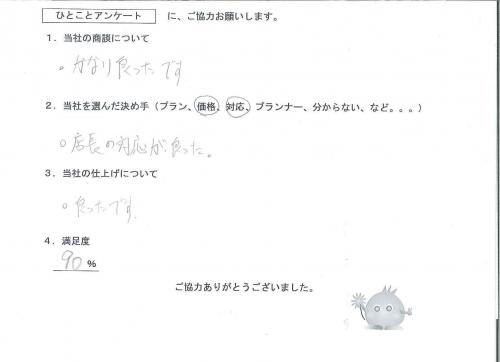 ひとことアンケート に、ご協力お願いします。
1．当社の商談について
。かなり良ったです
2．当社を選んだ決め手（プラン、価格、対応、プランナー、分からない、など。。。）
○店長の対応が良った。
3．当社の仕上げについて
○良ったです.
4．満足度
90 %
ご協力ありがとうございました。